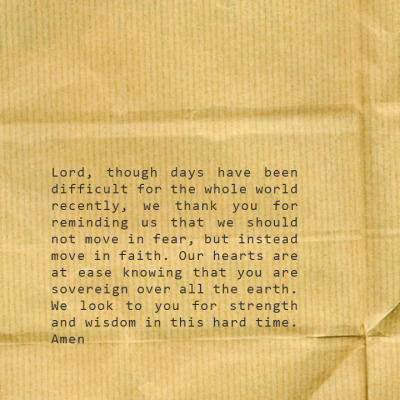 Lord, though days have been
difficult for the whole world
recently, we thank you for
reminding us that we should
not move in fear, but instead
move in faith. Our hearts are
at ease knowing that you are
sovereign over all the earth.
We look to you for strength
and wisdom in this hard time.
Amen